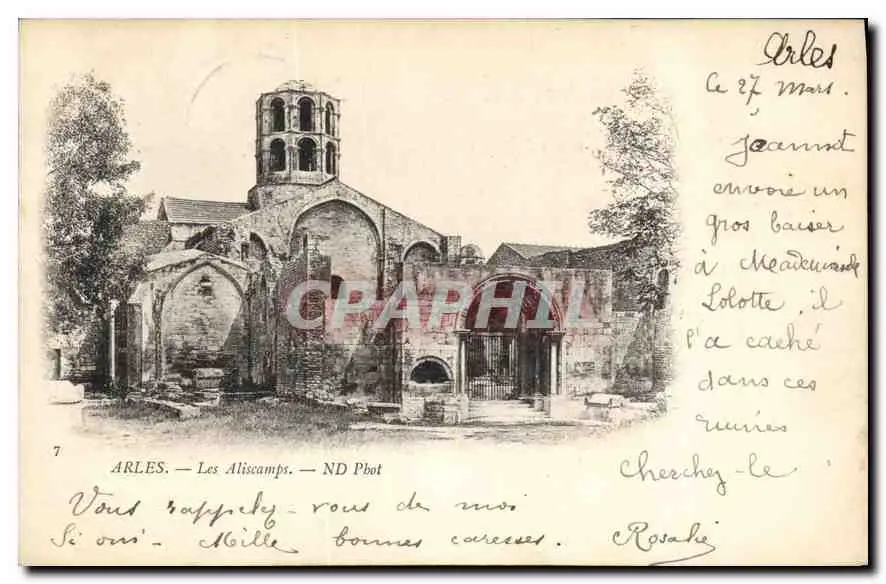 Arles
Ce 27 Mars.
Jeannot
envoie un
gros baiser
à Mademoiselle
Lolotte, il
l'a caché
dans ces
ruines
Cherchez-le
CPARPHIL
7
ARLES. — Les Aliscamps. — ND Phot
Vous rappelez-vous de moi
Si oui - Mille bonnes caresses. Rosalie